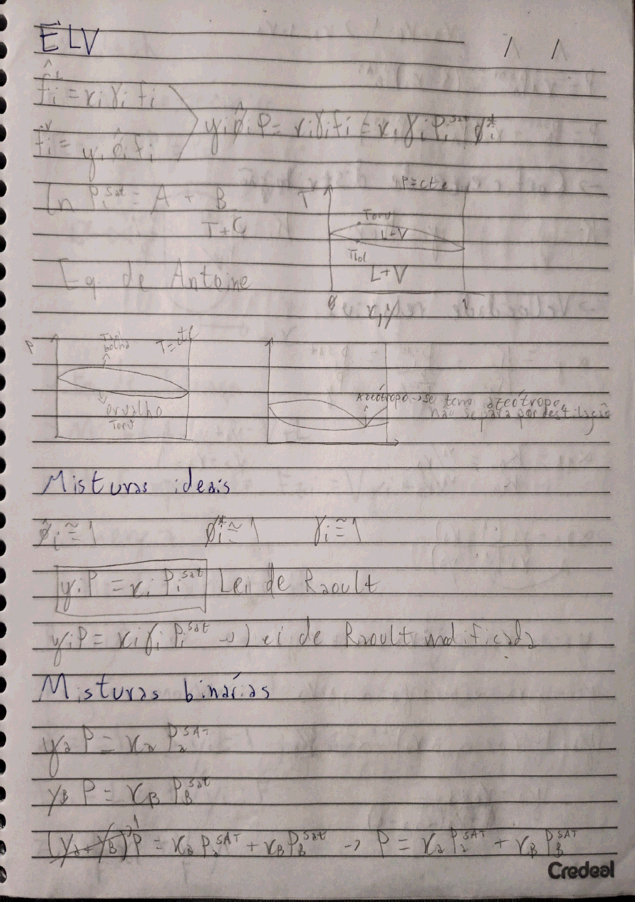 ELV
/ /
f̂ᵢᴸ = xᵢ γᵢ fᵢ
f̂ᵢᵛ = yᵢ φ̂ᵢ fᵢ
yᵢ φ̂ᵢ P = xᵢ γᵢ fᵢ = xᵢ γᵢ Pᵢˢᵃᵗ φᵢ*
ln Pᵢˢᵃᵗ = A + B
T+C
Eq. de Antoine
T P=cte
Torv
L+V
Tbol
L+V
0 x,y 1
P T=cte
bolha
orvalho
Torv
Azeótropo → se tem azeótropo,
não separa por destilação
Misturas ideais
φ̂ᵢ ≅ 1 φᵢ* ≅ 1 γᵢ ≅ 1
yᵢP = xᵢ Pᵢˢᵃᵗ Lei de Raoult
yᵢP = xᵢ γᵢ Pᵢˢᵃᵗ → Lei de Raoult modificada
Misturas binárias
ya P = xa PaSAT
yB P = xB PBsat
(ya + yB)¹ P = xa PaSAT + xB PBsat → P = xa PaSAT + xB PBSAT
Credeal